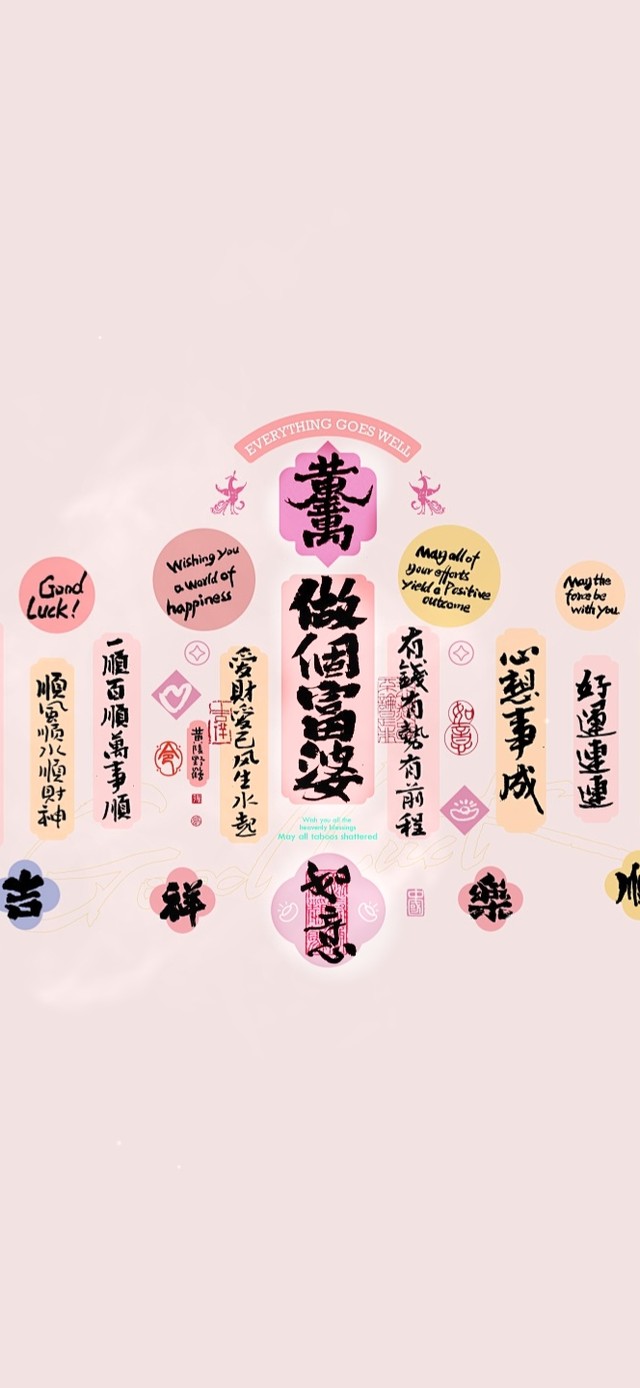 EVERYTHING GOES WELL
Good
Luck!
Wishing You
a world of
happiness
May all of
your efforts
yield a Positive
outcome
May the
force be
with you
順風順水順財神
一順百順萬事順
愛財愛己風生水起
做個富婆
有錢有勢有前程
心想事成
好運連連
如意
Wish you all the
heavenly blessings
May all taboos shattered
吉
祥
如意
樂
順